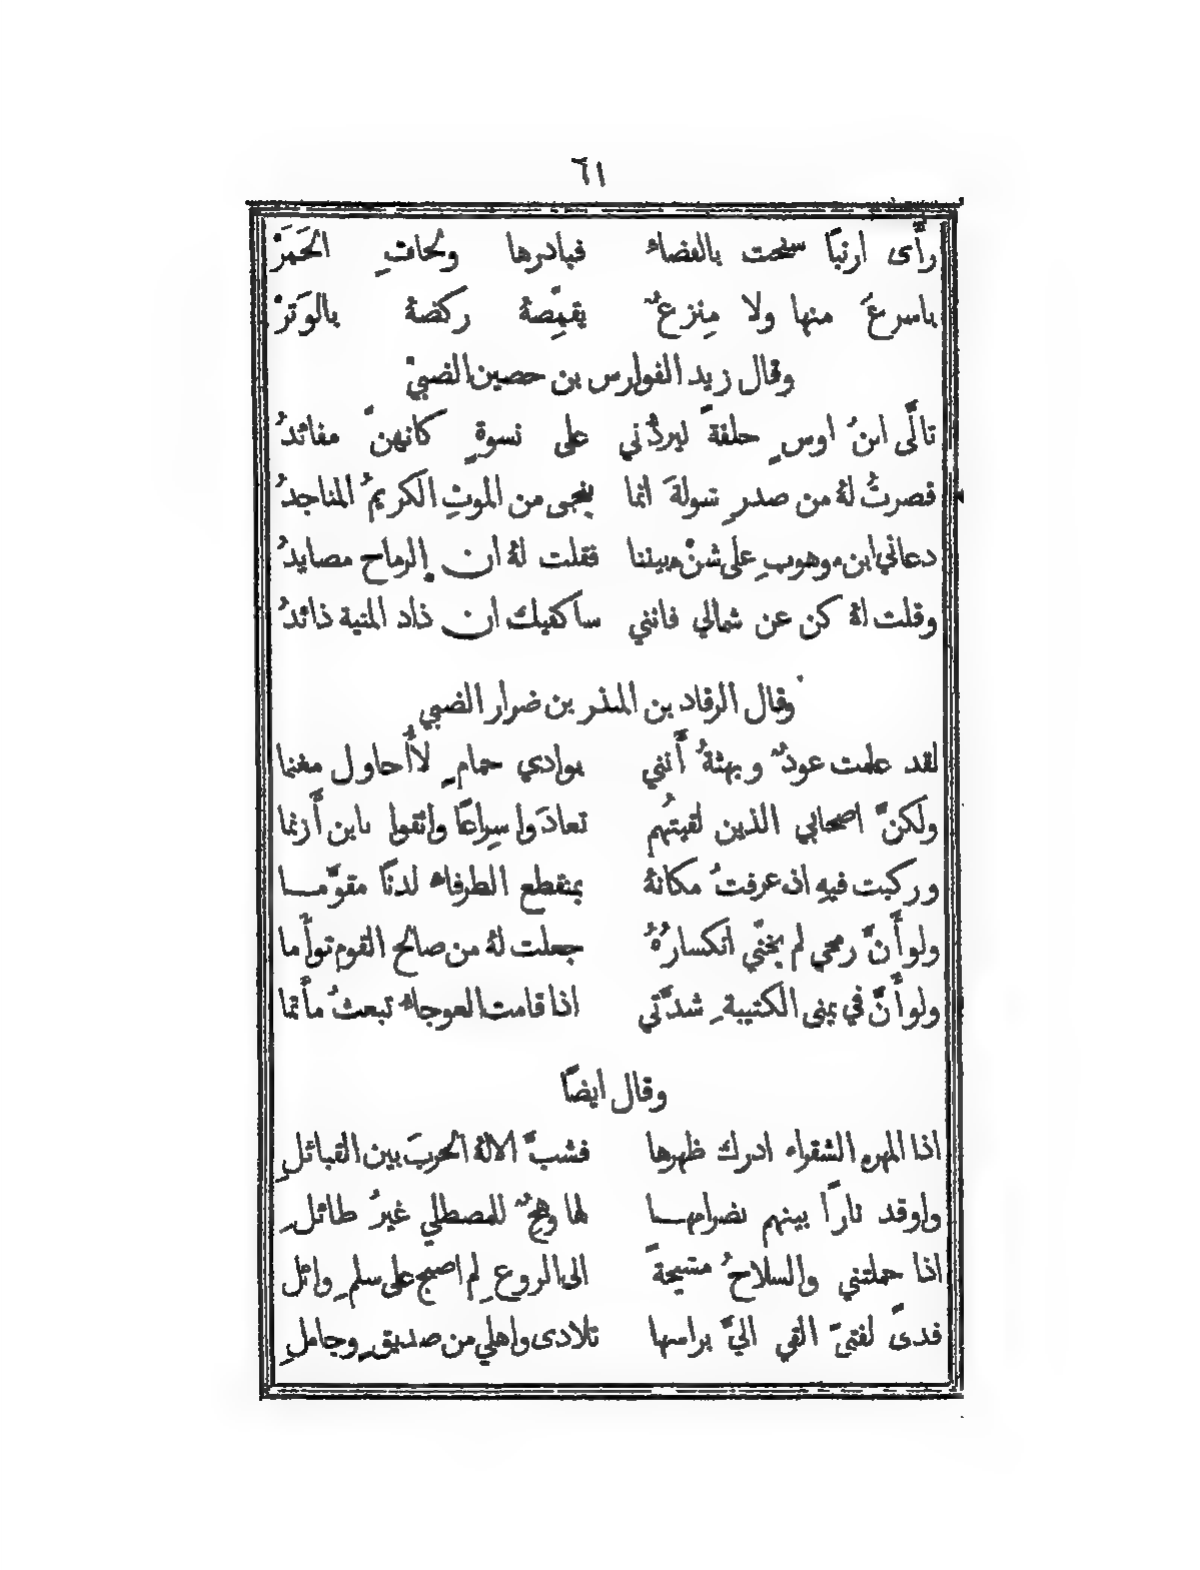 ٦١
رأَى ارنبًا سنحت بالفضاء فبادرها ولجات الخَمَرْ
باسرعَ منها ولا مِنزعٌ يقمِّصهُ ركضهُ بالوَترْ
وقال زيد الفوارس بن حصين الضبيّ
تالَّى ابنُ اوسٍ حلفةً ليردُّني على نسوةٍ كانهنَّ مفائدُ
قصرتُ لهُ من صدر شولةَ انما ينجى من الموتِ الكريمُ المناجدُ
دعاني ابن موهوبٍ على شنْ بيننا فقلت لهُ ان الرماح مصايدُ
وقلت لهُ كن عن شمالي فانني ساكفيك ان ذاد المنية ذائدُ
وقال الرقاد بن المنذر بن ضرار الضبي
لقد علمت عوذٌ وبهثةُ أَنني بوادي حمامٍ لاأُحاول مغنما
ولكنَّ اصحابي الذين لقيتهُم تعادَوا سِراعًا واتقوا بابن أَزنما
وركبت فيهِ اذ عرفتُ مكانهُ بمنقطع الطرفاء لدنًا مقوّمـــا
ولو أَنَّ رمحي لم يخنّي انكسارُهُ جعلت لهُ من صالح القوم توأَما
ولو أَنَّ في يمنى الكتيبةِ شدَّتي اذا قامت العوجاءُ تبعثُ مأْتما
وقال ايضًا
اذا المهرة الشقراء ادرك ظهرها فشبَّ الالهُ الحربَ بين القبائلِ
واوقد نارًا بينهم بضرامهـــا لها وهجٌ للمصطلي غيرُ طائلِ
اذا حملتني والسلاحُ مشيحةً الى الروعِ لم اصبح على سلمِ وائل
فدىً لفتىً القي اليَّ براسها تلادى واهلي من صديقٍ وجاملِ